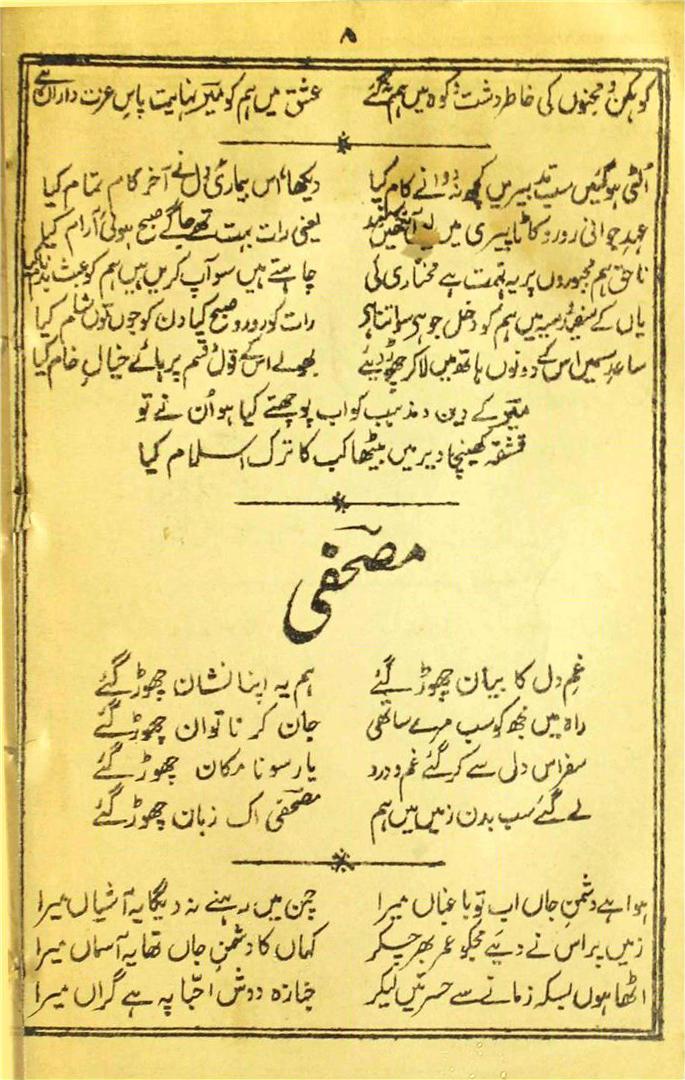 ۸
کوہکن و مجنوں کی خاطر دشت و کوہ میں ہم گئے عشق میں ہم کو میر نہایت پاس عزت داراں ہے
الٹی ہو گئیں سب تدبیریں کچھ نہ دوا نے کام کیا دیکھا، اس بیماریٔ دل نے آخر کام تمام کیا
عہد جوانی رو رو کاٹا پیری میں لیں آنکھیں موند یعنی رات بہت تھے جاگے صبح ہوئی آرام کیا
ناحق ہم مجبوروں پر یہ تہمت ہے مختاری کی چاہتے ہیں سو آپ کریں ہیں ہم کو عبث بدنام کیا
یاں کے سفید و سیہ میں ہم کو دخل جو ہے سو اتنا ہے رات کو رو رو صبح کیا دن کو جوں توں شام کیا
ساعد سیمیں اس کے دونوں ہاتھ میں لا کر چھوڑ دیئے بھولے اس کے قول و قسم پر ہائے خیال خام کیا
میرؔ کے دین و مذہب کو اب پوچھتے کیا ہو اُن نے تو
قشقہ کھینچا دیر میں بیٹھا کب کا ترک اسلام کیا
مصحفی
غمِ دل کا بیان چھوڑ گئے ہم یہ اپنا نشان چھوڑ گئے
راہ میں مجھ کو سب مرے ساتھی جان کر ناتواں چھوڑ گئے
سفر اس دل سے کر گئے غم و درد یار سونا مکان چھوڑ گئے
لے گئے سب بدن زمیں میں ہم مصحفیؔ اک زبان چھوڑ گئے
ہوا ہے دشمنِ جاں اب تو باغباں میرا چمن میں رہنے نہ دیگا یہ آشیاں میرا
زمیں پر اس نے دیئے مجکو عمر بھر چکر کہاں کا دشمنِ جاں تھا یہ آسماں میرا
اٹھا ہوں بسکہ زمانے سے حسرتیں لیکر جنازہ دوش احبّا پہ ہے گراں میرا